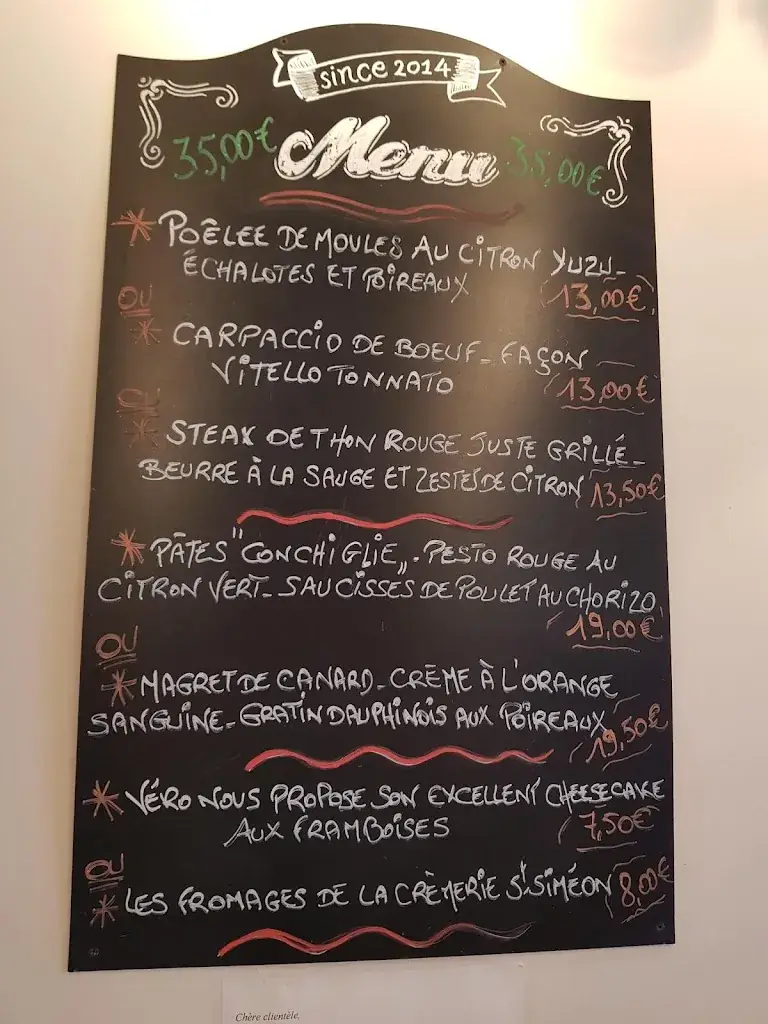 since 2014
35,00€ Menu 35,00€
* POÊLEE DE MOULES AU CITRON YUZU-
ÉCHALOTES ET POIREAUX
13,00€
OU
* CARPACCIO DE BOEUF - FAÇON
VITELLO TONNATO 13,00€
OU
* STEAK DE THON ROUGE JUSTE GRILLÉ-
BEURRE À LA SAUGE ET ZESTES DE CITRON 13,50€
* PÂTES "CONCHIGLIE„ - PESTO ROUGE AU
CITRON VERT - SAUCISSES DE POULET AU CHORIZO
19,00€
OU
* MAGRET DE CANARD - CRÈME À L'ORANGE
SANGUINE - GRATIN DAUPHINOIS AUX POIREAUX 19,50€
* VÉRO NOUS PROPOSE SON EXCELLENT CHEESECAKE
AUX FRAMBOISES 7,50€
OU
* LES FROMAGES DE LA CRÈMERIE St SIMÉON 8,00€
Chère clientèle,